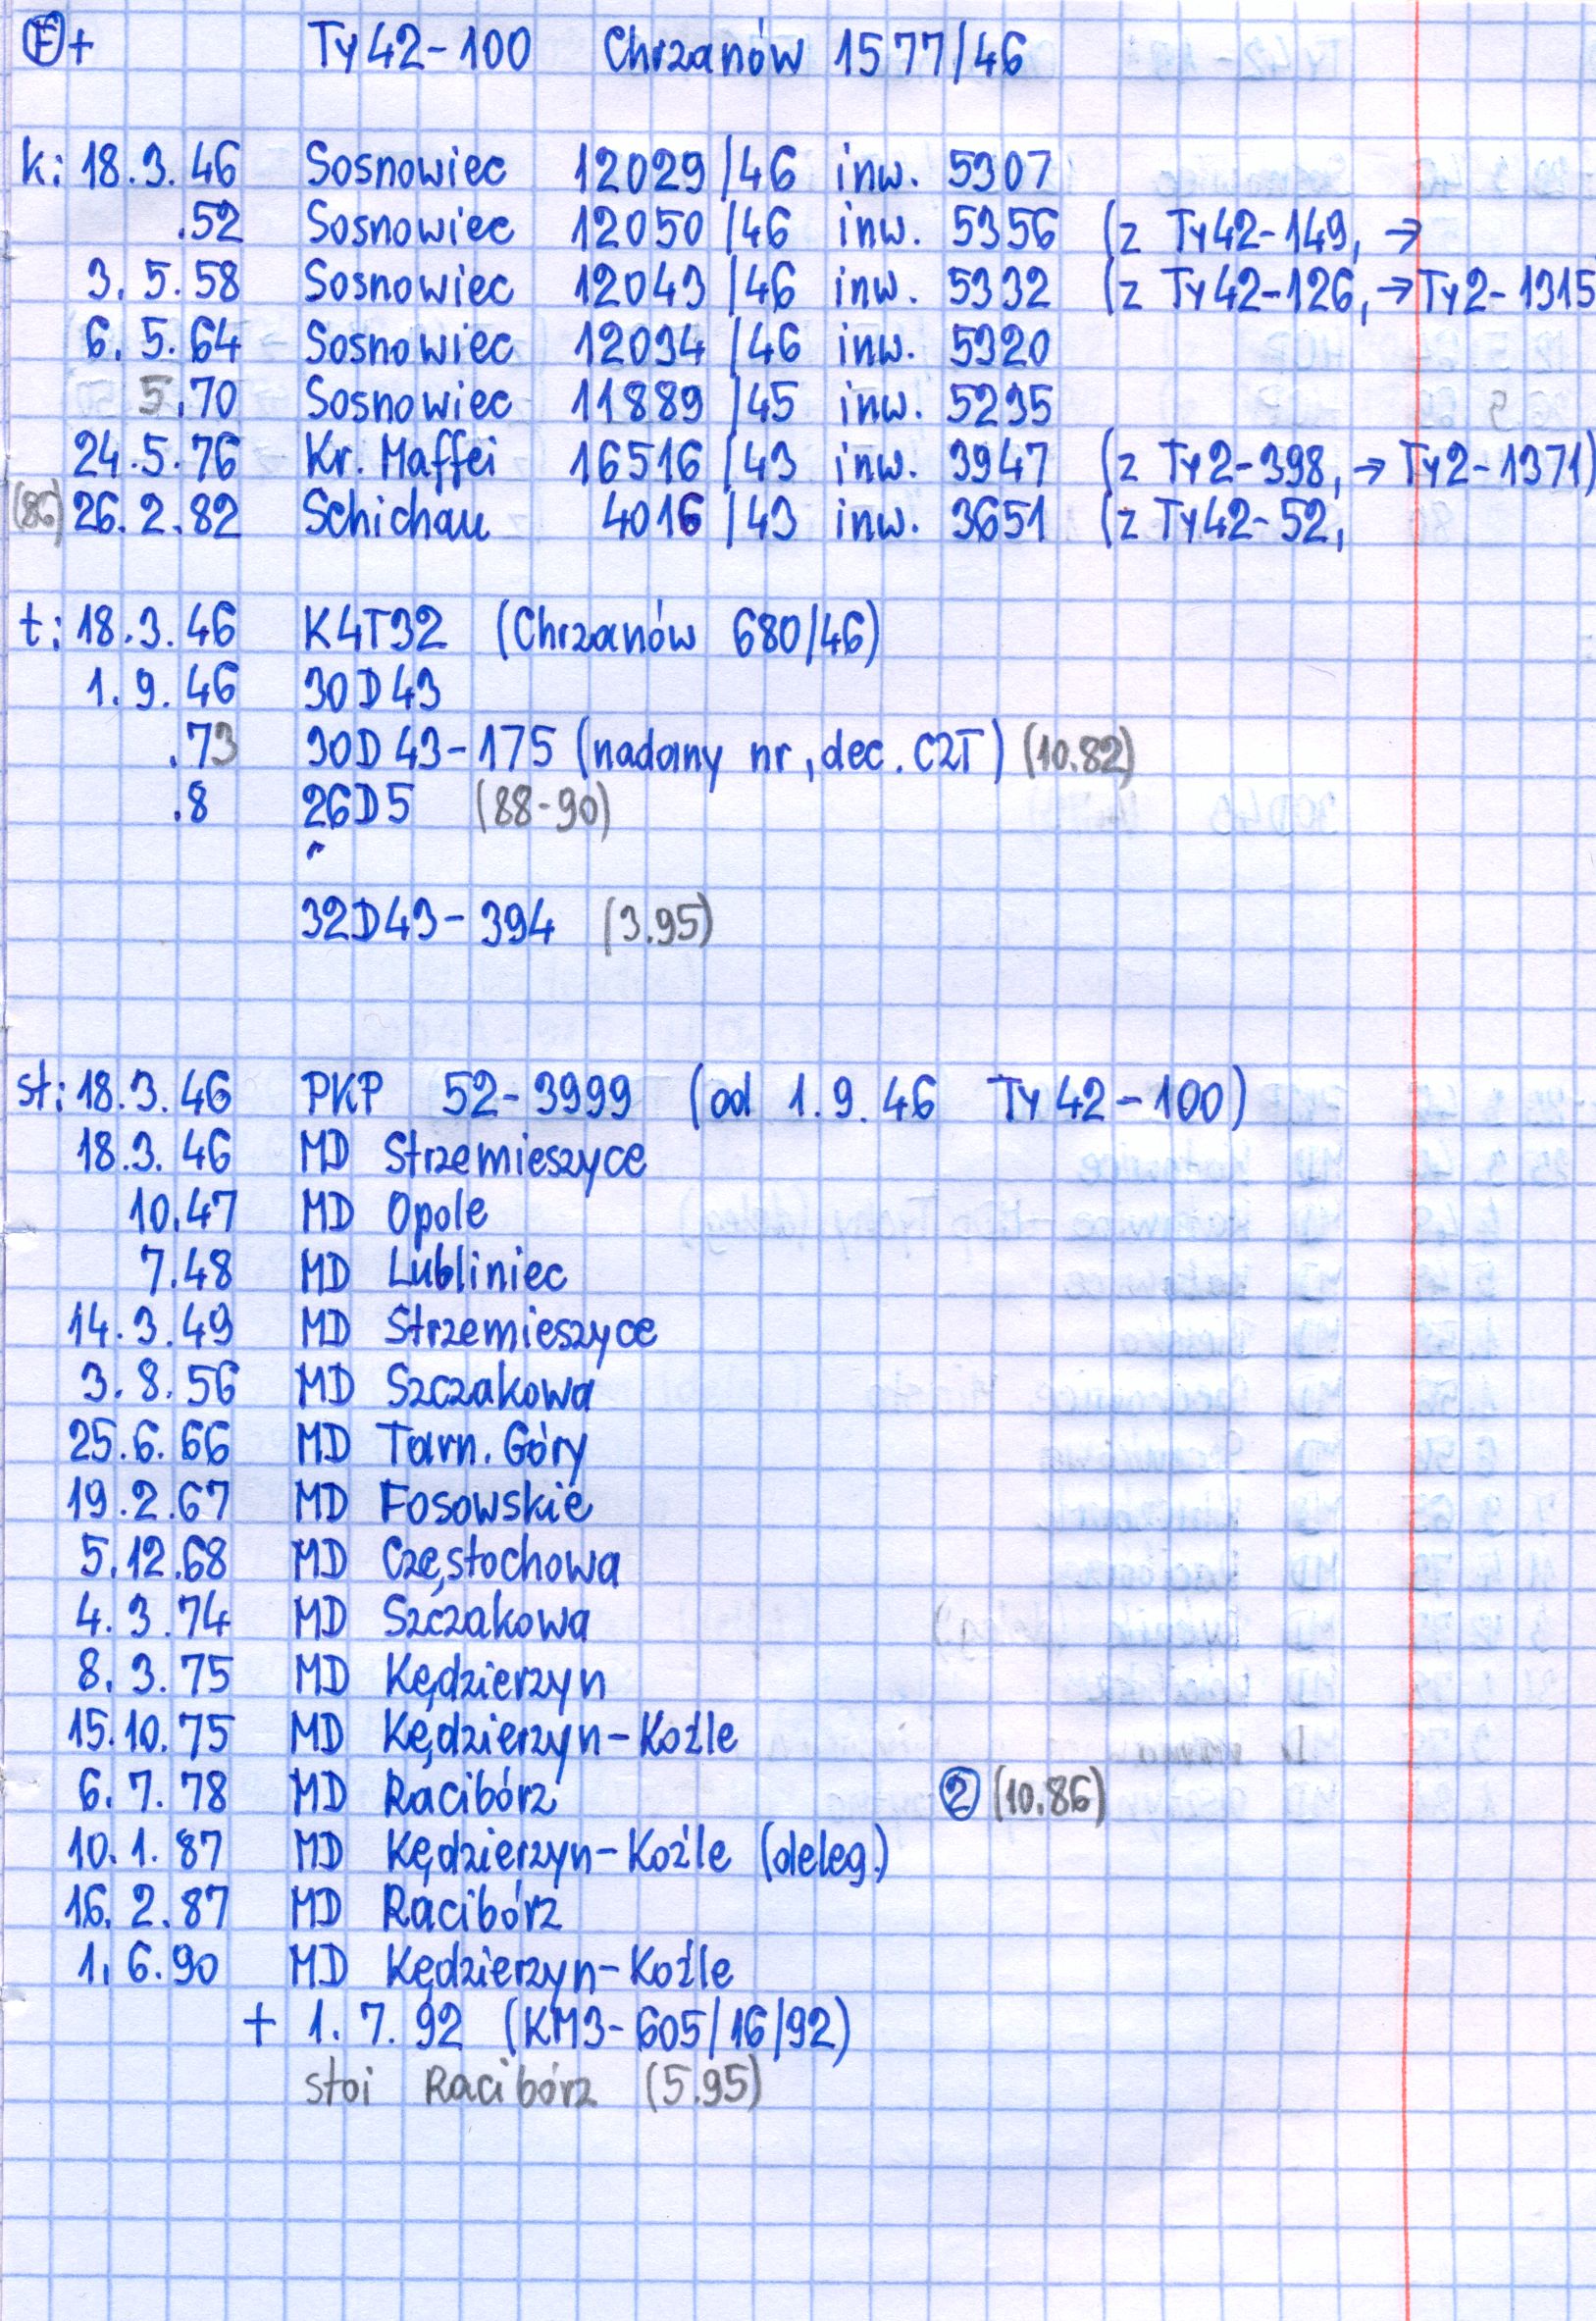 Ⓔ+ Ty42-100 Chrzanów 1577/46
k: 18.3.46 Sosnowiec 12029/46 inw. 5307
.52 Sosnowiec 12050/46 inw. 5356 (z Ty42-149, →
3.5.58 Sosnowiec 12043/46 inw. 5332 (z Ty42-126, → Ty2-1315
6.5.64 Sosnowiec 12034/46 inw. 5320
5.70 Sosnowiec 11889/45 inw. 5235
24.5.76 Kr. Maffei 16516/43 inw. 3947 (z Ty2-398, → Ty2-1371)
(86) 26.2.82 Schichau 4016/43 inw. 3651 (z Ty42-52,
t: 18.3.46 K4T32 (Chrzanów 680/46)
1.9.46 30D43
.73 30D43-175 (nadany nr, dec. CZT) (10.82)
.8 26D5 (88-90)
32D43-394 (3.95)
st: 18.3.46 PKP 52-3999 (od 1.9.46 Ty42-100)
18.3.46 MD Strzemieszyce
10.47 MD Opole
7.48 MD Lubliniec
14.3.49 MD Strzemieszyce
3.8.56 MD Szczakowa
25.6.66 MD Tarn. Góry
19.2.67 MD Fosowskie
5.12.68 MD Częstochowa
4.3.74 MD Szczakowa
8.3.75 MD Kędzierzyn
15.10.75 MD Kędzierzyn-Koźle
6.7.78 MD Racibórz ② (10.86)
10.1.87 MD Kędzierzyn-Koźle (deleg.)
16.2.87 MD Racibórz
1.6.90 MD Kędzierzyn-Koźle
+ 1.7.92 (KM3-605/16/92)
stoi Racibórz (5.95)